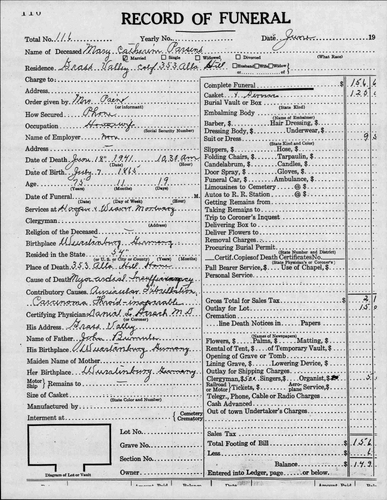 RECORD OF FUNERAL
Total No. 116 Yearly No. Date June 19
Name of Deceased Mary Catherine
Married Single Widowed Divorced (What Race)
Residence Grass Valley, Calif 353 Alta Hill Husband/Wife/Widow of
Charge to
Address
Order given by Mrs. (or informant)
How Secured Phone
Occupation Housewife (Social Security Number)
Name of Employer
Address
Date of Death June 18 1941 10.30 am
Date of Birth July 7 1865
Age 75 11 19
Date of Funeral
Services at Hooper & Weaver Mortuary
Clergyman
Religion of the Deceased
Birthplace Wurttenburg Germany
Resided in the State
Place of Death 353 Alta Hill Home
Cause of Death Myocardial Insufficiency
Contributory Causes Auricular Fibrillation
Carcinoma Thyroid-inoperable
Certifying Physician Daniel L Hirsch M.D.
(or Coroner)
His Address Grass Valley
Name of Father John
His Birthplace Wurttenburg Germany
Maiden Name of Mother
Her Birthplace Wurttenburg Germany
Motor Ship Remains to
Size of Casket
(State Color and Number)
Manufactured by
Interment at Cemetery Crematory
Lot No.
Grave No.
Section No.
Owner
Diagram of Lot or Vault
Complete Funeral $ 156
Casket & Service $ 120
Burial Vault or Box
(State Kind)
Embalming Body
(Name of Embalmer)
Barber, $ Hair Dressing, $
Dressing Body, $ Underwear, $
Suit or Dress $ 9
(State Kind and Color)
Slippers, $ Hose, $
Folding Chairs, $ Tarpaulin, $
Candelabrum, $ Candles, $
Door Spray, $ Gloves, $
Funeral Car, $ Ambulance, $
Limousines to Cemetery @ $
Autos to R. R. Station @ $
Getting Remains from
Taking Remains to
Trip to Coroner's Inquest
Delivering Box to
Deliver Flowers to
Removal Charges
Procuring Burial Permit
(State Number and District)
Certif. Copies of Death Certificates No.
(State Physician's or Coroner's)
Pall Bearer Service, $ Use of Chapel, $
Personal Service
Gross Total for Sales Tax
Outlay for Lot
Cremation
line Death Notices in Papers
(Name Newspapers)
Flowers, $ Palms, $ Matting, $
Rental of Tent, $ of Temporary Vault, $
Opening of Grave or Tomb
Lining Grave, $ Lowering Device, $
Outlay for Shipping Charges
Clergyman, $ Singers, $ Organist, $
Railroad/Motor Tickets, $ Aeroplane Service, $
Telegr., Phone, Cable or Radio Charges
Cash Advanced
Out of town Undertaker's Charges
Sales Tax
Total Footing of Bill $ 156
Less $ 6
Balance $ 149
Entered into Ledger, page or below.